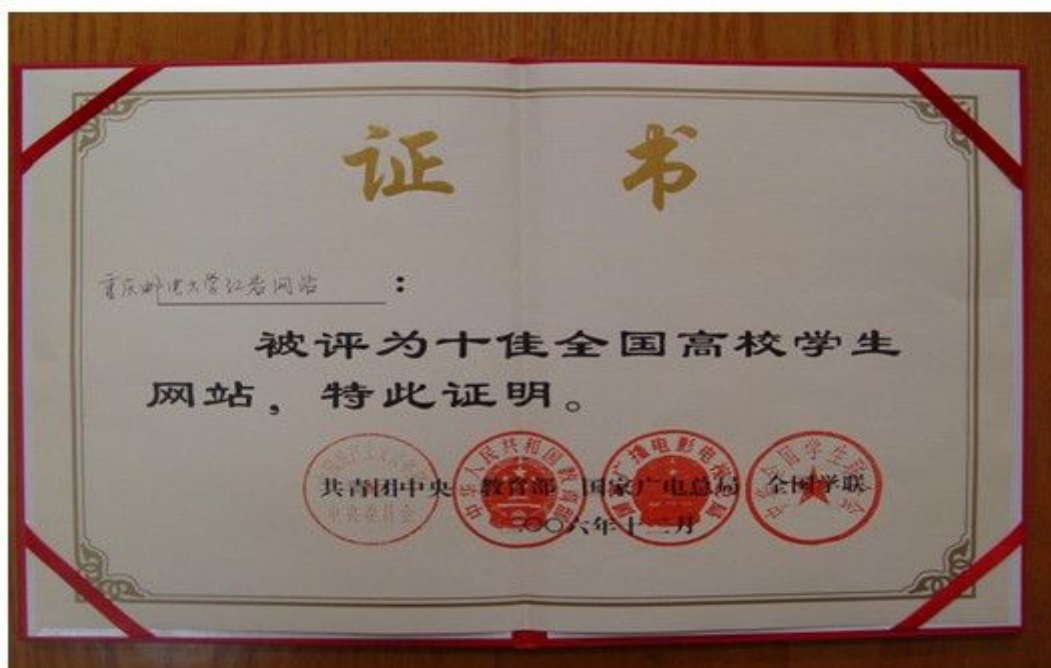 证 书
重庆邮电大学红岩网站：
被评为十佳全国高校学生
网站，特此证明。
共青团中央 教育部 国家广电总局 全国学联
二〇〇六年十二月